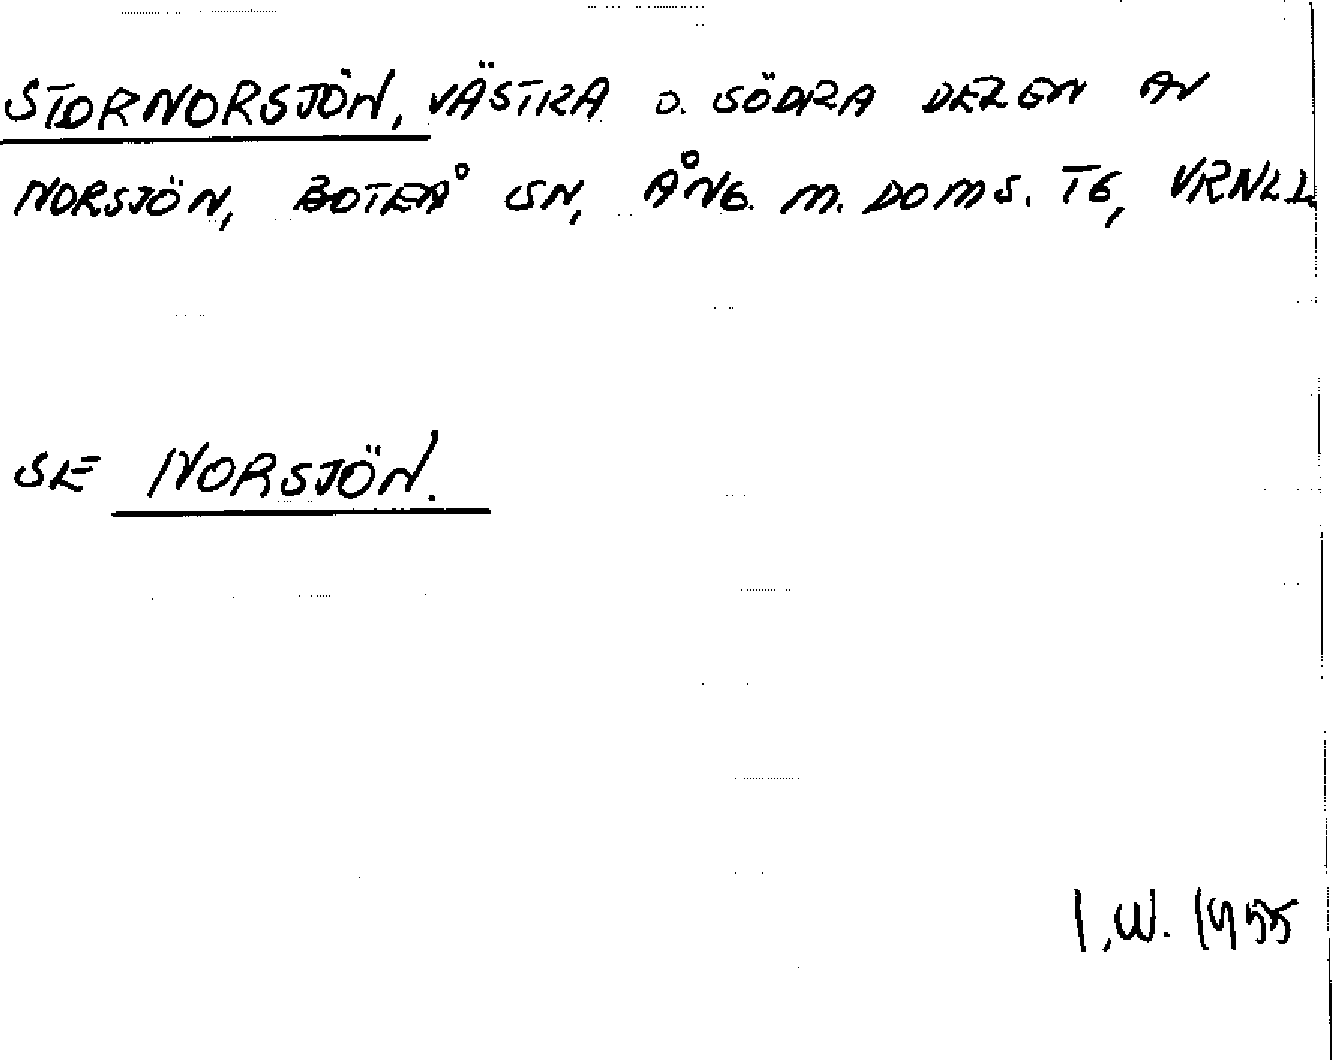 STORNORSJÖN, VÄSTRA O. SÖDRA DELEN AV
NORSJÖN, BOTEÅ SN, ÅNG. M. DOMS. TG, VRNLL
SE NORSJÖN.
I.W. 1955